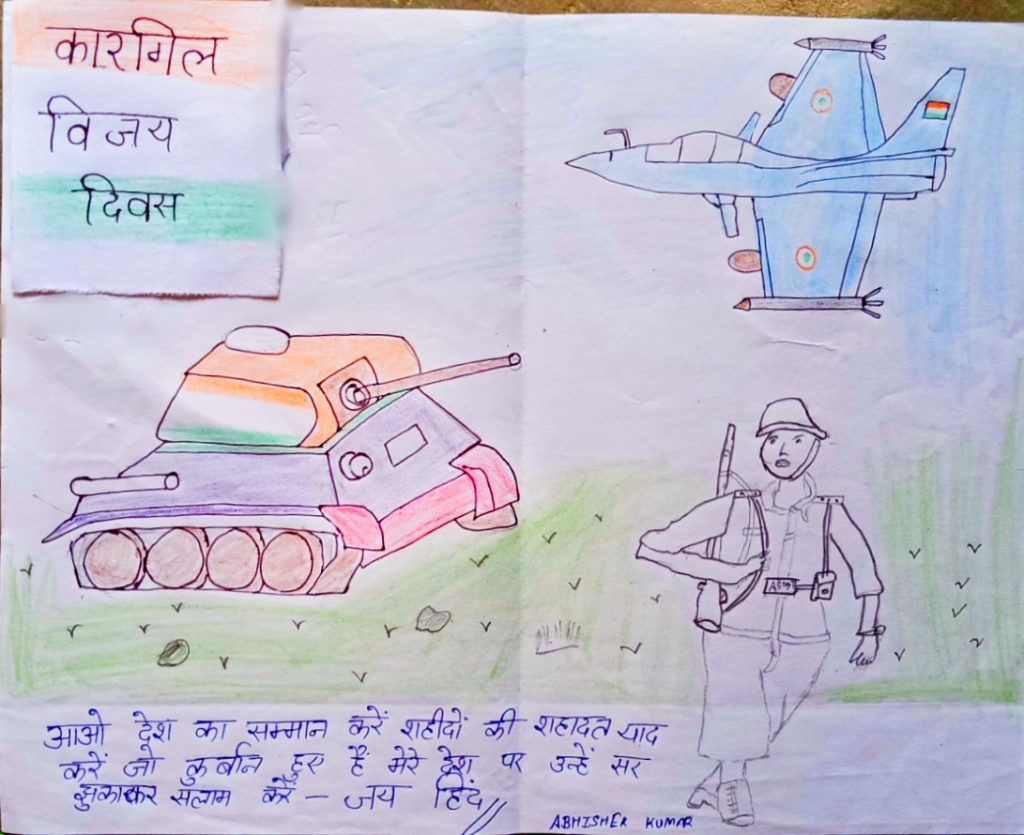 कारगिल
विजय
दिवस
ARMY
आओ देश का सम्मान करें शहीदों की शहादत याद
करें जो कुर्बान हुए हैं मेरे देश पर उन्हें सर
झुकाकर सलाम करें – जय हिंद //
ABHISHEK KUMAR